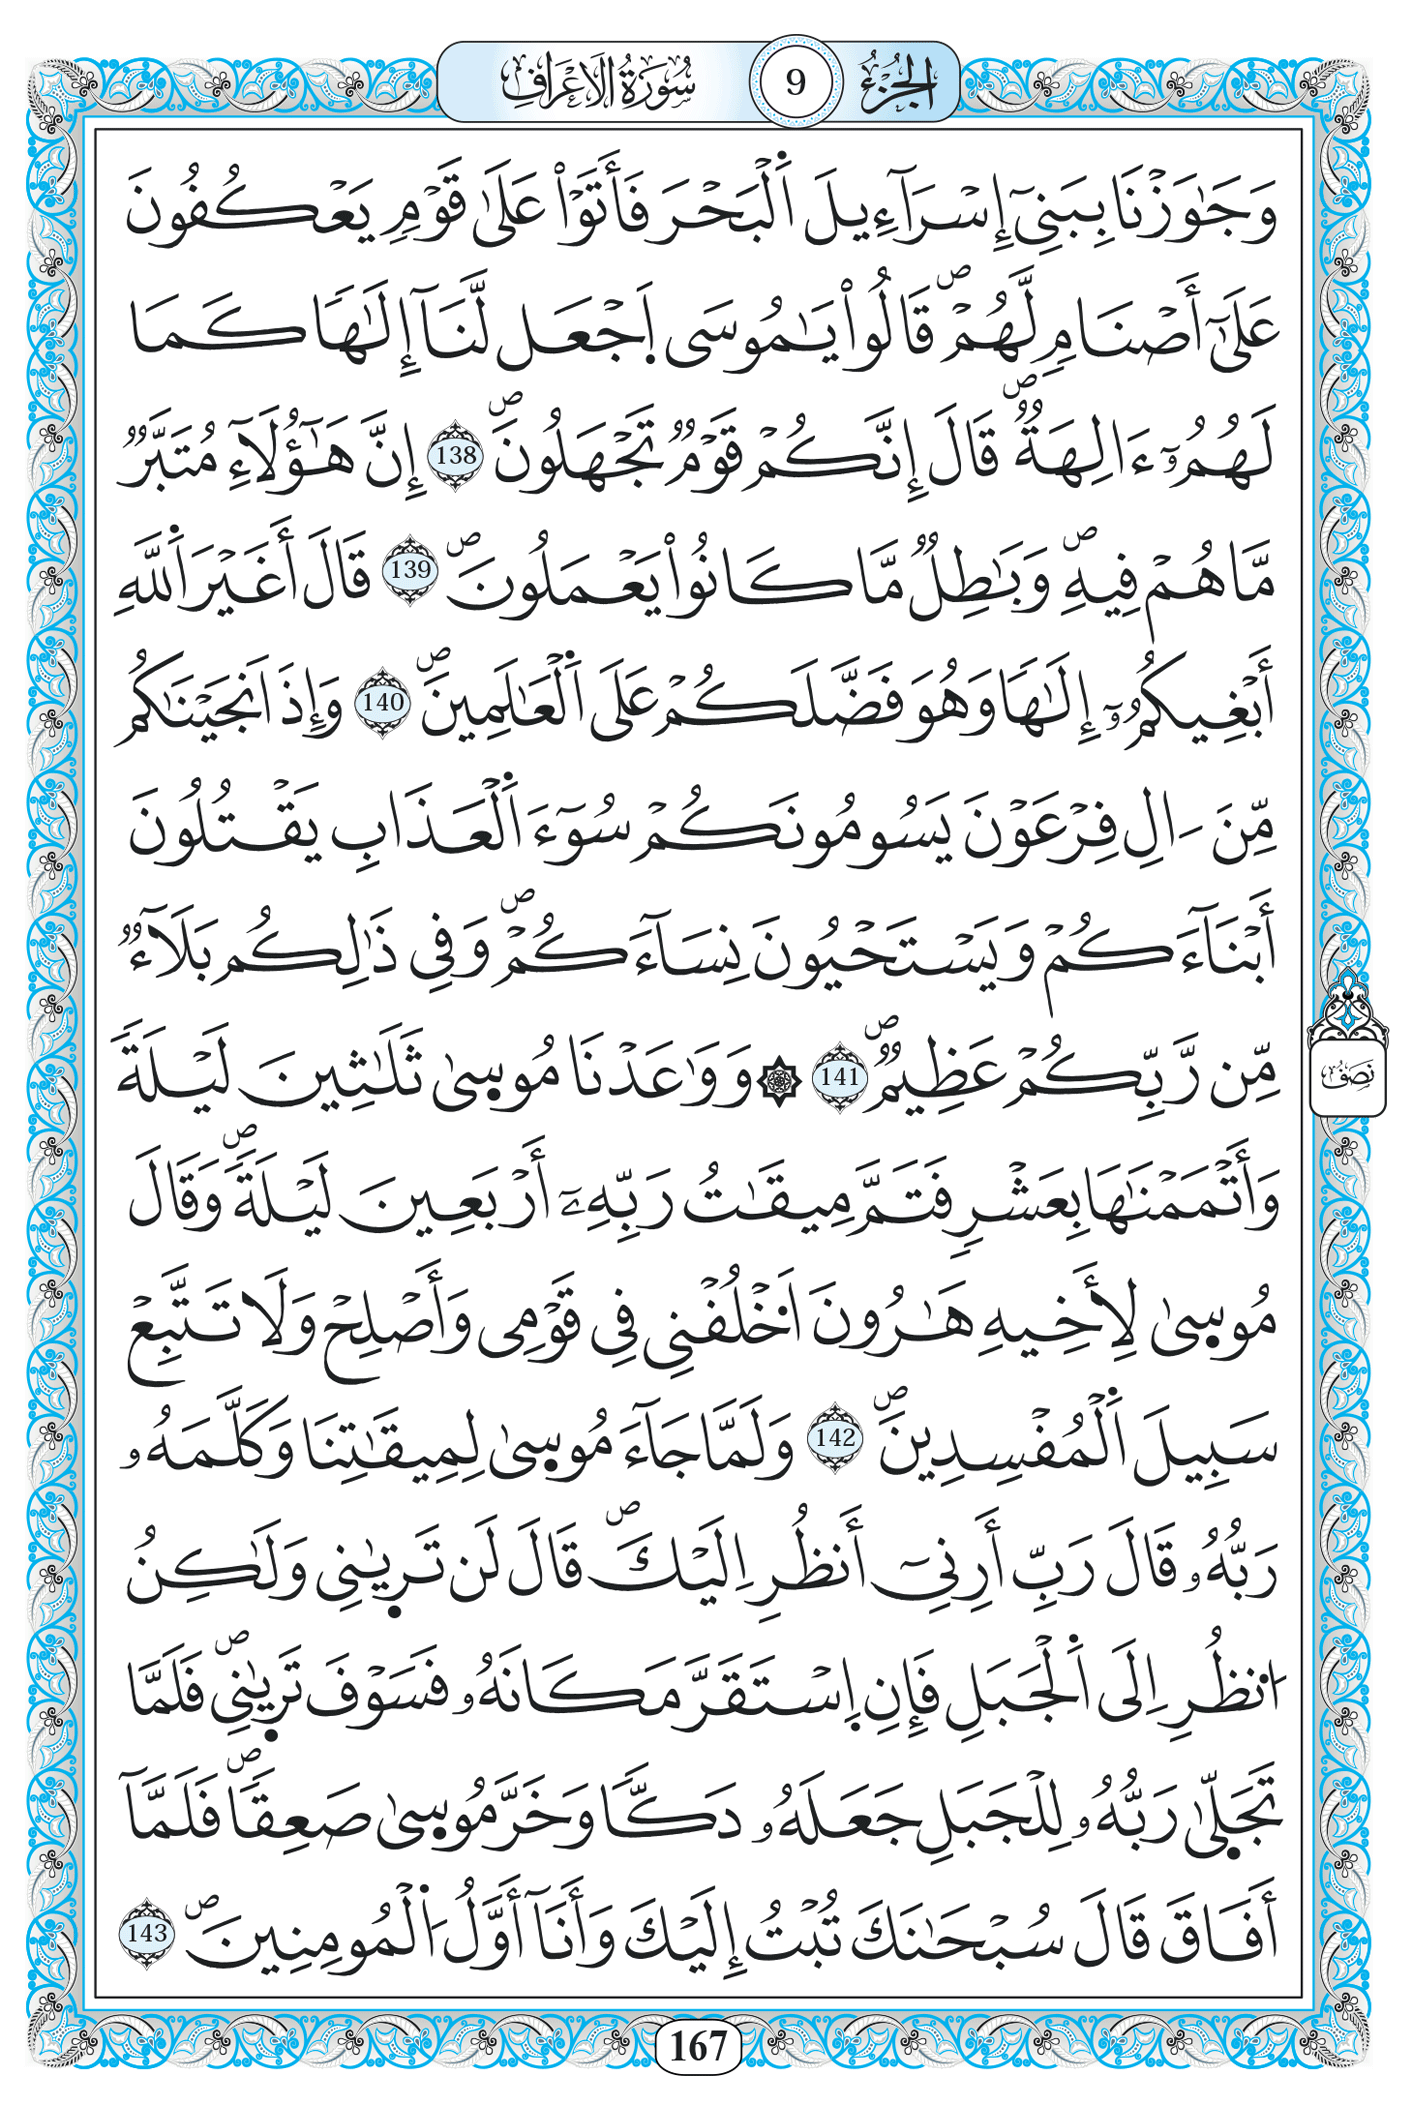 الجزء 9 سورة الاعراف
وَجَٰوَزْنَا بِبَنِےٓ إِسْرَآءِيلَ اَ۬لْبَحْرَ فَأَتَوْاْ عَلَىٰ قَوْمٖ يَعْكُفُونَ
عَلَىٰٓ أَصْنَامٖ لَّهُمْۖ قَالُواْ يَٰمُوسَى اَ۪جْعَل لَّنَآ إِلَٰهاٗ كَمَا
لَهُمُۥٓ ءَالِهَةٞۖ قَالَ إِنَّكُمْ قَوْمٞ تَجْهَلُونَۖ 138 إِنَّ هَٰٓؤُلَآءِ مُتَبَّرٞ
مَّا هُمْ فِيهِۖ وَبَٰطِلٞ مَّا كَانُواْ يَعْمَلُونَۖ 139 قَالَ أَغَيْرَ اَ۬للَّهِ
أَبْغِيكُمُۥٓ إِلَٰهاٗ وَهُوَ فَضَّلَكُمْ عَلَى اَ۬لْعَٰلَمِينَۖ 140 وَإِذَ اَنجَيْنَٰكُم
مِّنَ اٰلِ فِرْعَوْنَ يَسُومُونَكُمْ سُوٓءَ اَ۬لْعَذَابِ يَقْتُلُونَ
أَبْنَآءَكُمْ وَيَسْتَحْيُونَ نِسَآءَكُمْۖ وَفِے ذَٰلِكُم بَلَآءٞ
مِّن رَّبِّكُمْ عَظِيمٞۖ 141 ۞ وَوَٰعَدْنَا مُوس۪ىٰ ثَلَٰثِينَ لَيْلَةٗ
وَأَتْمَمْنَٰهَا بِعَشْرٖ فَتَمَّ مِيقَٰتُ رَبِّهِۦٓ أَرْبَعِينَ لَيْلَةٗۖ وَقَالَ
مُوس۪ىٰ لِأَخِيهِ هَٰرُونَ اَ۟خْلُفْنِے فِے قَوْمِے وَأَصْلِحْ وَلَا تَتَّبِعْ
سَبِيلَ اَ۬لْمُفْسِدِينَۖ 142 وَلَمَّا جَآءَ مُوس۪ىٰ لِمِيقَٰتِنَا وَكَلَّمَهُۥ
رَبُّهُۥ قَالَ رَبِّ أَرِنِےٓ أَنظُرِ اِلَيْكَۖ قَالَ لَن تَر۪يٰنِے وَلَٰكِنُ
اُ۟نظُرِ اِلَى اَ۬لْجَبَلِ فَإِنِ اِ۪سْتَقَرَّ مَكَانَهُۥ فَسَوْفَ تَر۪يٰنِےۖ فَلَمَّا
تَجَلّ۪ىٰ رَبُّهُۥ لِلْجَبَلِ جَعَلَهُۥ دَكّاٗ وَخَرَّ مُوس۪ىٰ صَعِقاٗۖ فَلَمَّآ
أَفَاقَ قَالَ سُبْحَٰنَكَ تُبْتُ إِلَيْكَ وَأَنَآ أَوَّلُ اُ۬لْمُومِنِينَۖ 143
نصف
167